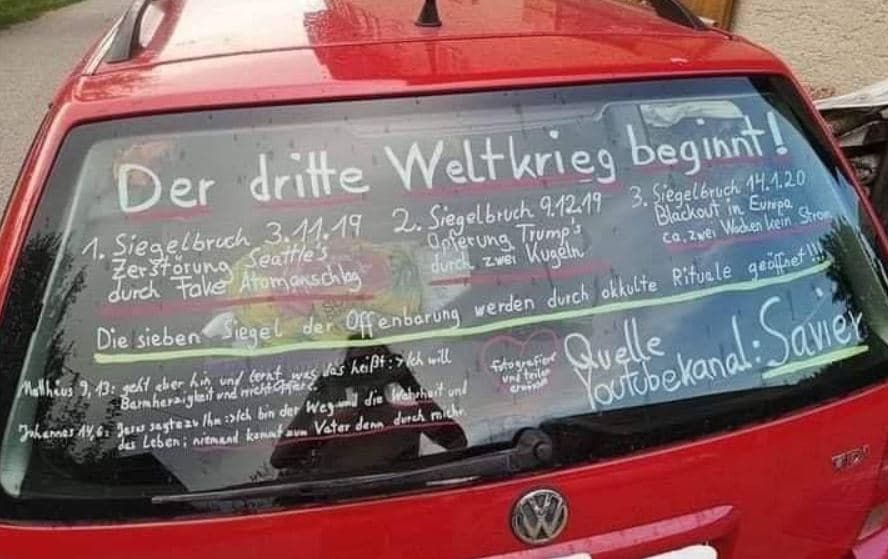 Der dritte Weltkrieg beginnt!
1. Siegelbruch 3.11.19
Zerstörung Seattle's
durch Fake Atomanschlag
2. Siegelbruch 9.12.19
Opferung Trump's
durch zwei Kugeln
3. Siegelbruch 14.1.20
Blackout in Europa
ca. zwei Wochen kein Strom
Die sieben Siegel der Offenbarung werden durch okkulte Rituale geöffnet!!!
Matthäus 9,13: geht aber hin und lernt was das heißt:> Ich will
Barmherzigkeit und nicht Opfer<.
Johannes 14,6: Jesus sagte zu Ihm:>Ich bin der Weg und die Wahrheit und
das Leben; niemand kommt zum Vater denn durch mich.
fotografieren
und teilen
erwünscht
Quelle
Youtubekanal: Savier
TDI
VW